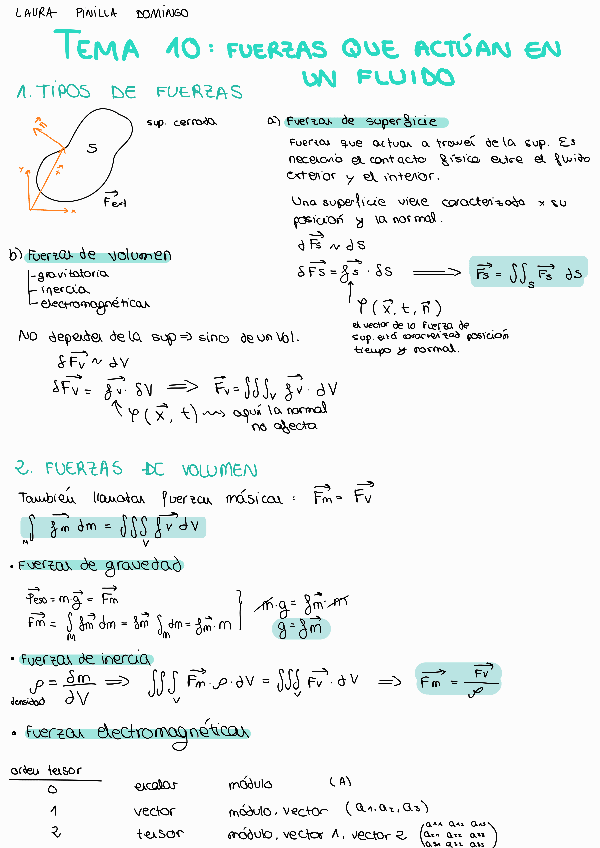 LAURA PINILLA DOMINGO
TEMA 10: FUERZAS QUE ACTÚAN EN
UN FLUIDO
1. TIPOS DE FUERZAS
sup. cerrada
S
F⃗ext
n⃗
r⃗
Y
x
a) Fuerzas de superficie
Fuerzas que actuan a través de la sup. Es
necesario el contacto físico entre el fluido
exterior y el interior.
Una superficie viene caracterizada x su
posición y la normal.
∂F⃗s ~ ∂S
δF⃗s = f⃗s · δS ⟹ F⃗s = ∬s F⃗s ds
φ(x⃗, t, n⃗)
el vector de la fuerza de
sup. está caracterizad posición
tiempo y normal.
b) Fuerzas de volumen
- gravitatoria
- inercia
- electromagnéticas
No depende de la sup ⇒ sino de un Vol.
δF⃗v ~ ∂V
δF⃗v = f⃗v · δV ⟹ F⃗v = ∭v f⃗v · dV
φ(x⃗, t) ⇝ aquí la normal
no afecta
2. FUERZAS DE VOLUMEN
También llamadas fuerzas másicas: F⃗m = F⃗v
∫M f⃗m dm = ∭V f⃗v dV
• Fuerzas de gravedad
P⃗eso = m·g⃗ = F⃗m
F⃗m = ∫M f⃗m dm = f⃗m ∫m dm = f⃗m · m
m·g = f⃗m · m
g = f⃗m
• Fuerzas de inercia
ρ = δm/∂V ⟹ ∭V F⃗m · ρ · dV = ∭V F⃗v · dV ⟹ F⃗m = F⃗v/ρ
densidad
• Fuerzas electromagnéticas
orden tensor
0 escalar módulo (A)
1 vector módulo, vector (a₁, a₂, a₃)
2 tensor módulo, vector 1, vector 2 (a₁₁ a₁₂ a₁₃
a₂₁ a₂₂ a₂₃
a₃₁ a₃₂ a₃₃)